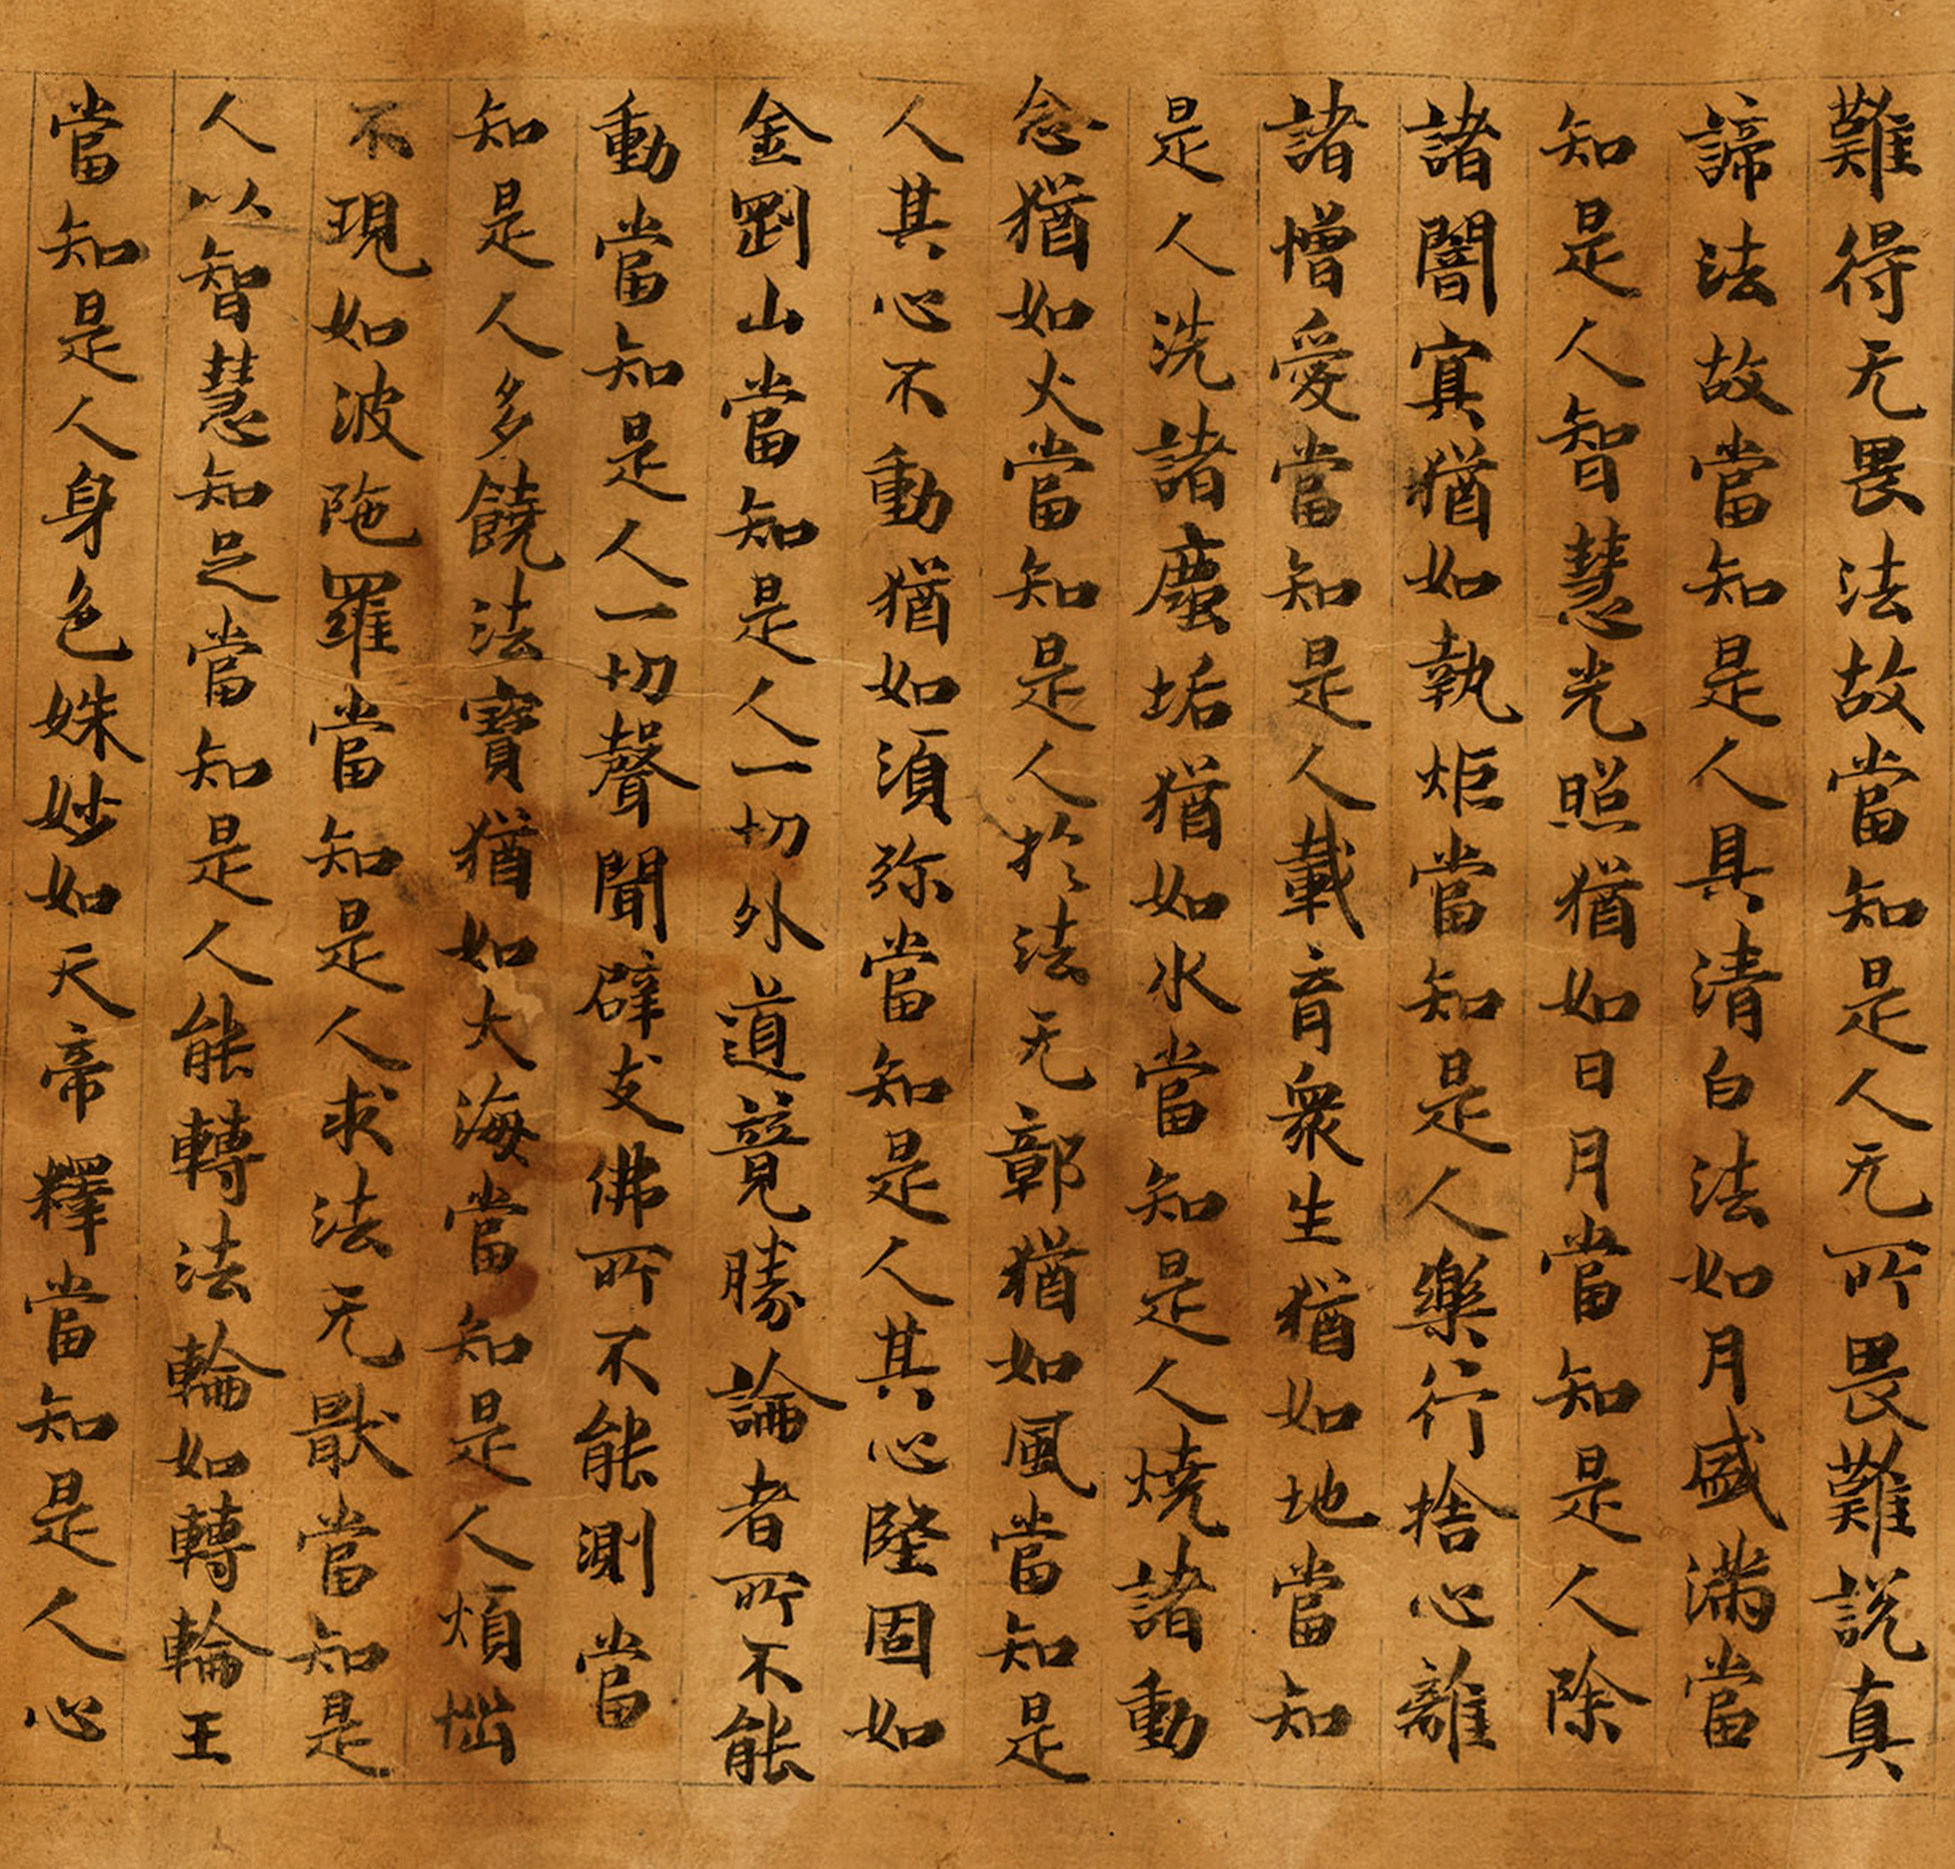 難得无畏法故當知是人无所畏難説真
諦法故當知是人具清白法如月盛滿當
知是人智慧光照猶如日月當知是人除
諸闇寘猶如執炬當知是人樂行捨心離
諸憎愛當知是人載育衆生猶如地當知
是人洗諸塵垢猶如水當知是人燒諸動
念猶如火當知是人於法无鄣猶如風當知是
人其心不動猶如須弥當知是人其心隆固如
金剛山當知是人一切外道竟勝論者所不能
動當知是人一切聲聞辟支佛所不能測當
知是人多饒法寶猶如大海當知是人煩惱
不現如波陁羅當知是人求法无猒當知是
人以智慧知足當知是人能轉法輪如轉輪王
當知是人身色姝妙如天帝釋當知是人心